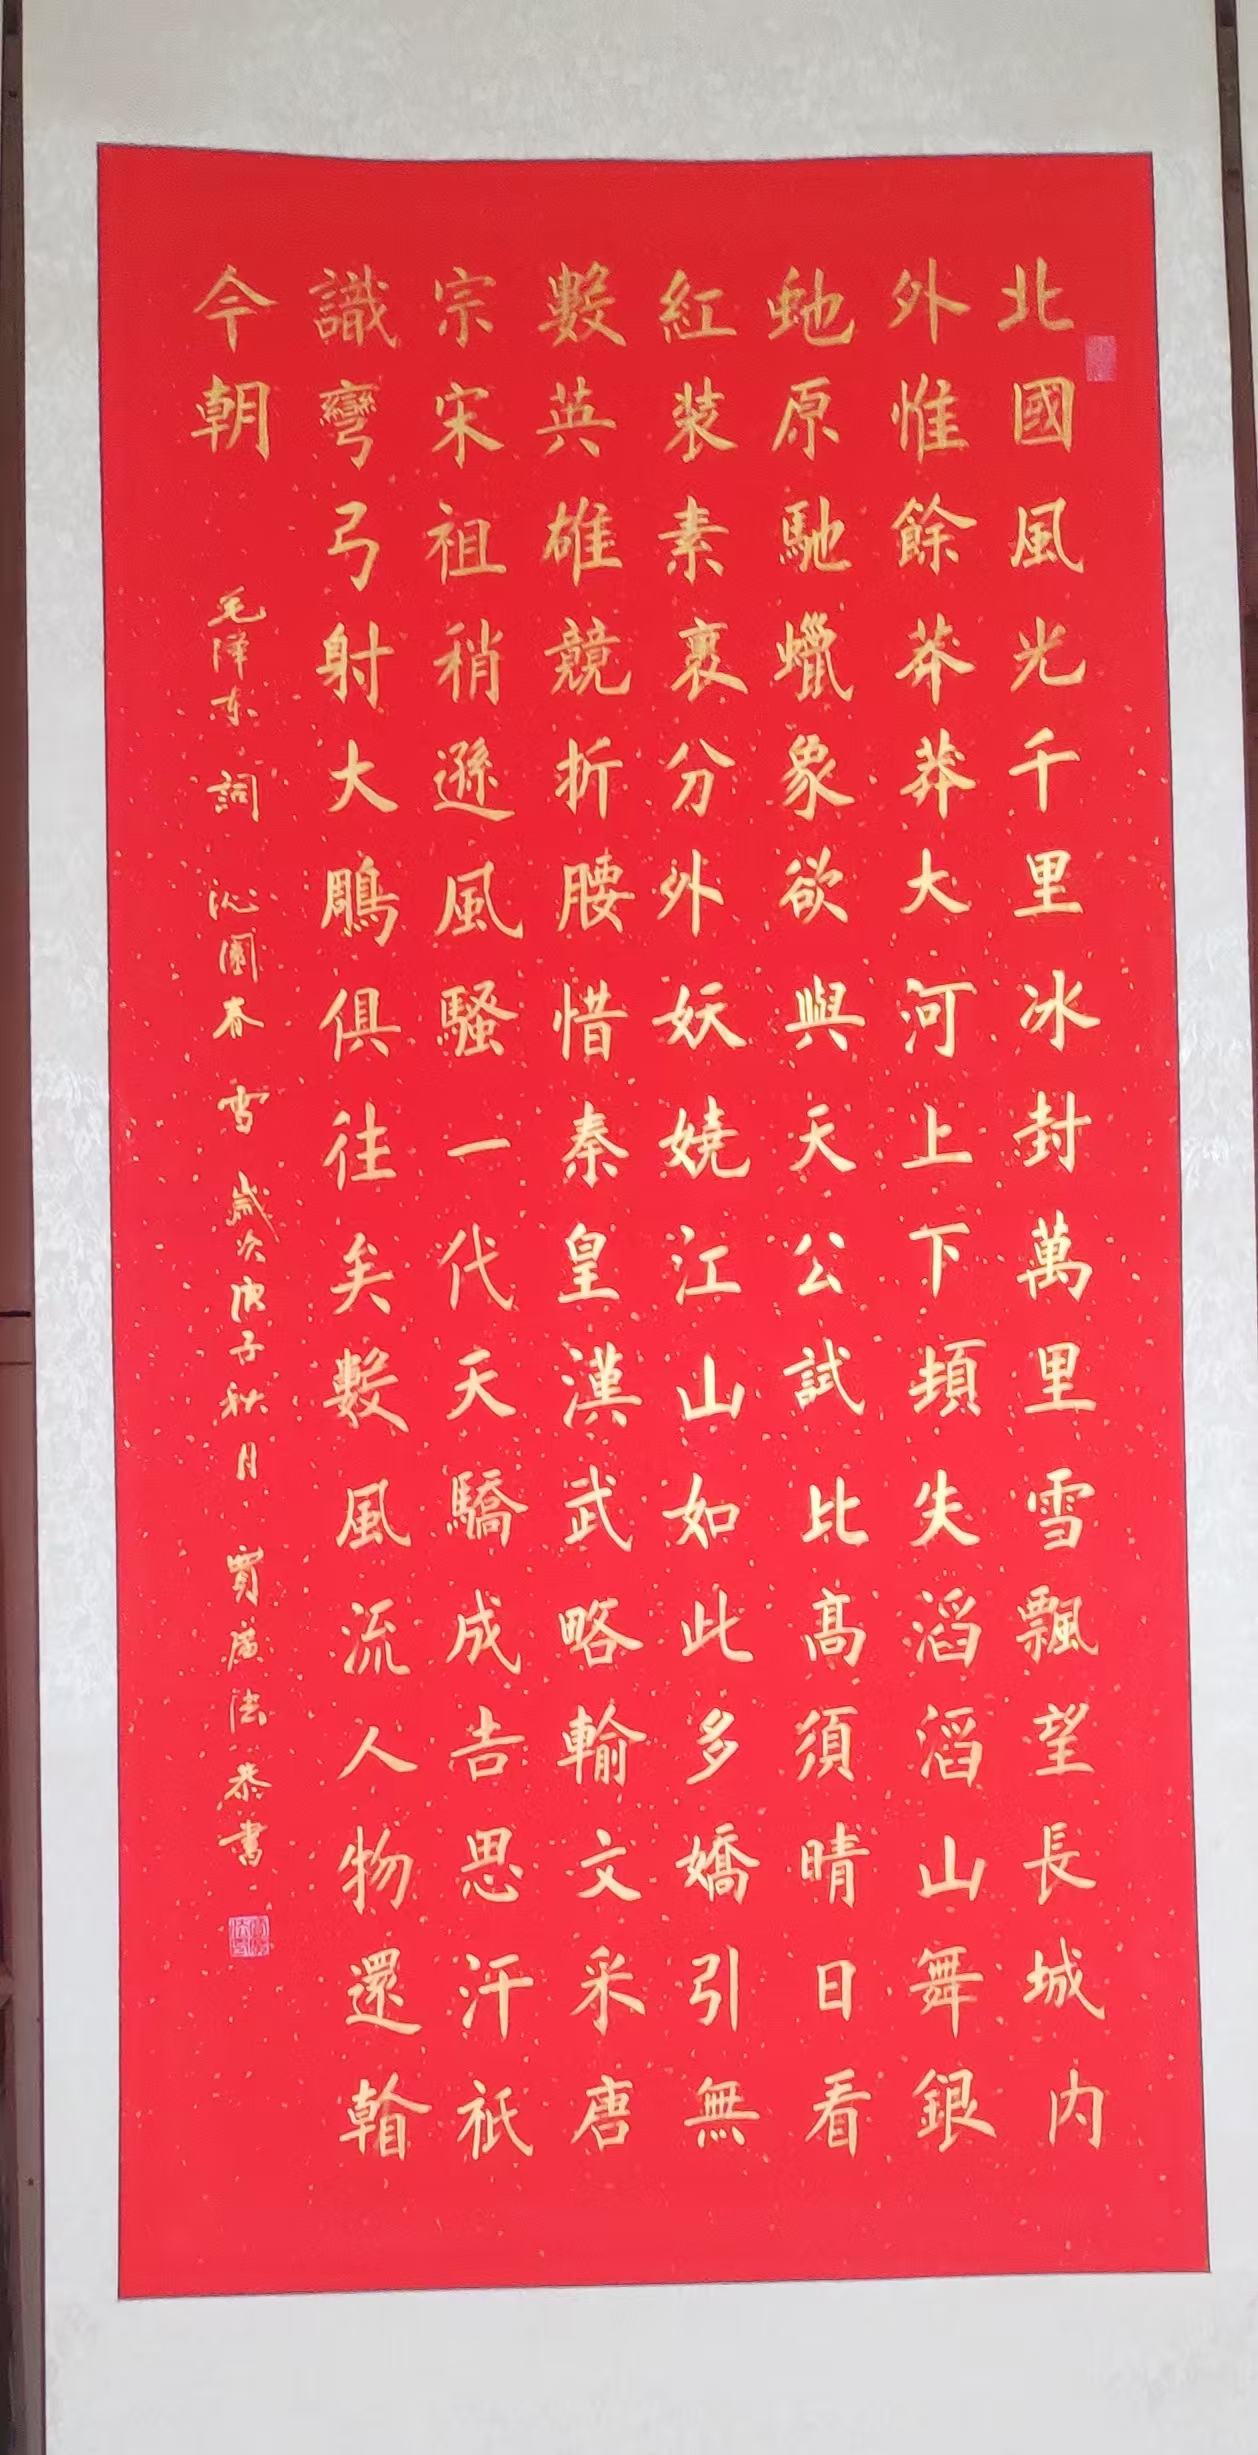 北國風光千里冰封萬里雪飄望長城内
外惟餘莽莽大河上下頓失滔滔山舞銀
虵原馳蠟象欲與天公試比髙須晴日看
紅装素裹分外妖嬈江山如此多嬌引無
數英雄競折腰惜秦皇漢武略輸文采唐
宗宋祖稍遜風騷一代天驕成吉思汗祇
識彎弓射大鵰俱往矣數風流人物還看
今朝
毛泽东詞沁園春雪歲次庚子秋月賈廣法恭書